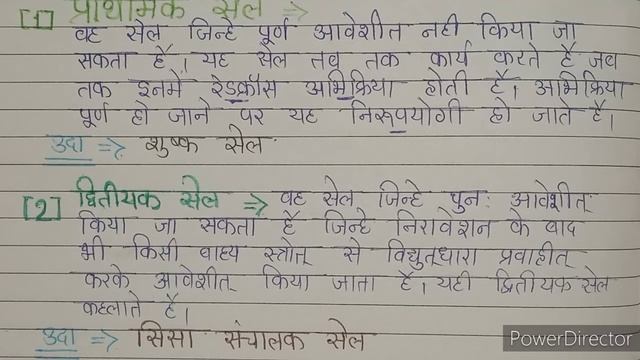 [1] प्राथमिक सेल ⇒
वह सेल जिन्हे पूर्ण आवेशीत नही किया जा
सकता है। यह सेल तव तक कार्य करते है जव
तक इनमें रेडक्रॉस अभिक्रिया होती है। अभिक्रिया
पूर्ण हो जाने पर यह निरूपयोगी हो जाते है।
उदा ⇒ शुष्क सेल
[2] द्वितीयक सेल ⇒ वह सेल जिन्हे पुनः आवेशीत्
किया जा सकता है जिन्हे निरावेशन के बाद
भी किसी वाह्य स्त्रोत् से विद्युत्धारा प्रवाहीत्
करके आवेशीत् किया जाता है। यही द्वितीयक सेल
कहलाते है।
उदा ⇒ सिसा संचालक सेल
PowerDirector